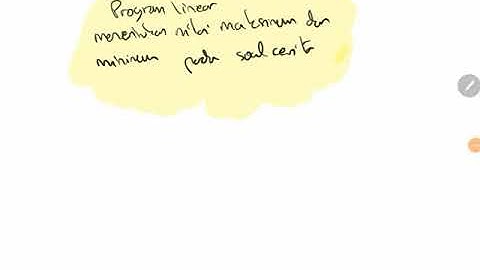 Program linear
menentukan nilai maksimum dan
minimum pada soal cerita